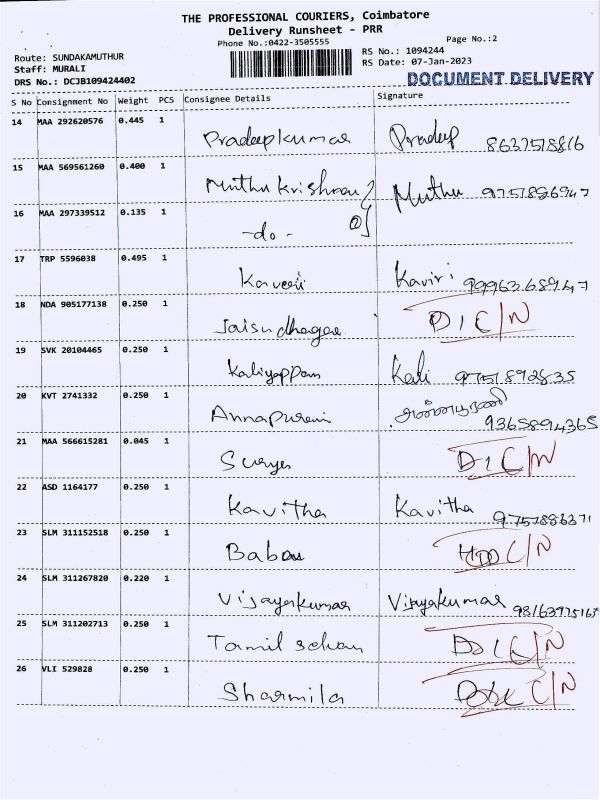 THE PROFESSIONAL COURIERS, Coimbatore
Delivery Runsheet - PRR
Phone No.:0422-3505555
Page No.:2
Route: SUNDAKAMUTHUR
RS No.: 1094244
Staff: MURALI
RS Date: 07-Jan-2023
DRS No.: DCJB109424402
DOCUMENT DELIVERY
S No Consignment No Weight PCS Consignee Details Signature
14 MAA 292620576 0.445 1
Pradeepkumar Pradeep 8637518816
15 MAA 569561260 0.400 1
Muthu Krishnan Muthu 9751886947
16 MAA 297339512 0.135 1
-do-
17 TRP 5596038 0.495 1
Kaveri Kaviri
18 NDA 905177138 0.250 1
Jaisudhagar D/C/N
19 SVK 20104465 0.250 1
Kaliyappan Kali 9751892835
20 KVT 2741332 0.250 1
Annapurani அன்னபூரணி 9365894365
21 MAA 566615281 0.045 1
Surya D/C/N
22 ASD 1164177 0.250 1
Kavitha Kavitha
23 SLM 311152518 0.250 1
Babau C/N
24 SLM 311267820 0.220 1
Vijayakumar Vijayakumar
25 SLM 311202713 0.250 1
Tamil selvan C/N
26 VLI 529828 0.250 1
Sharmila C/N